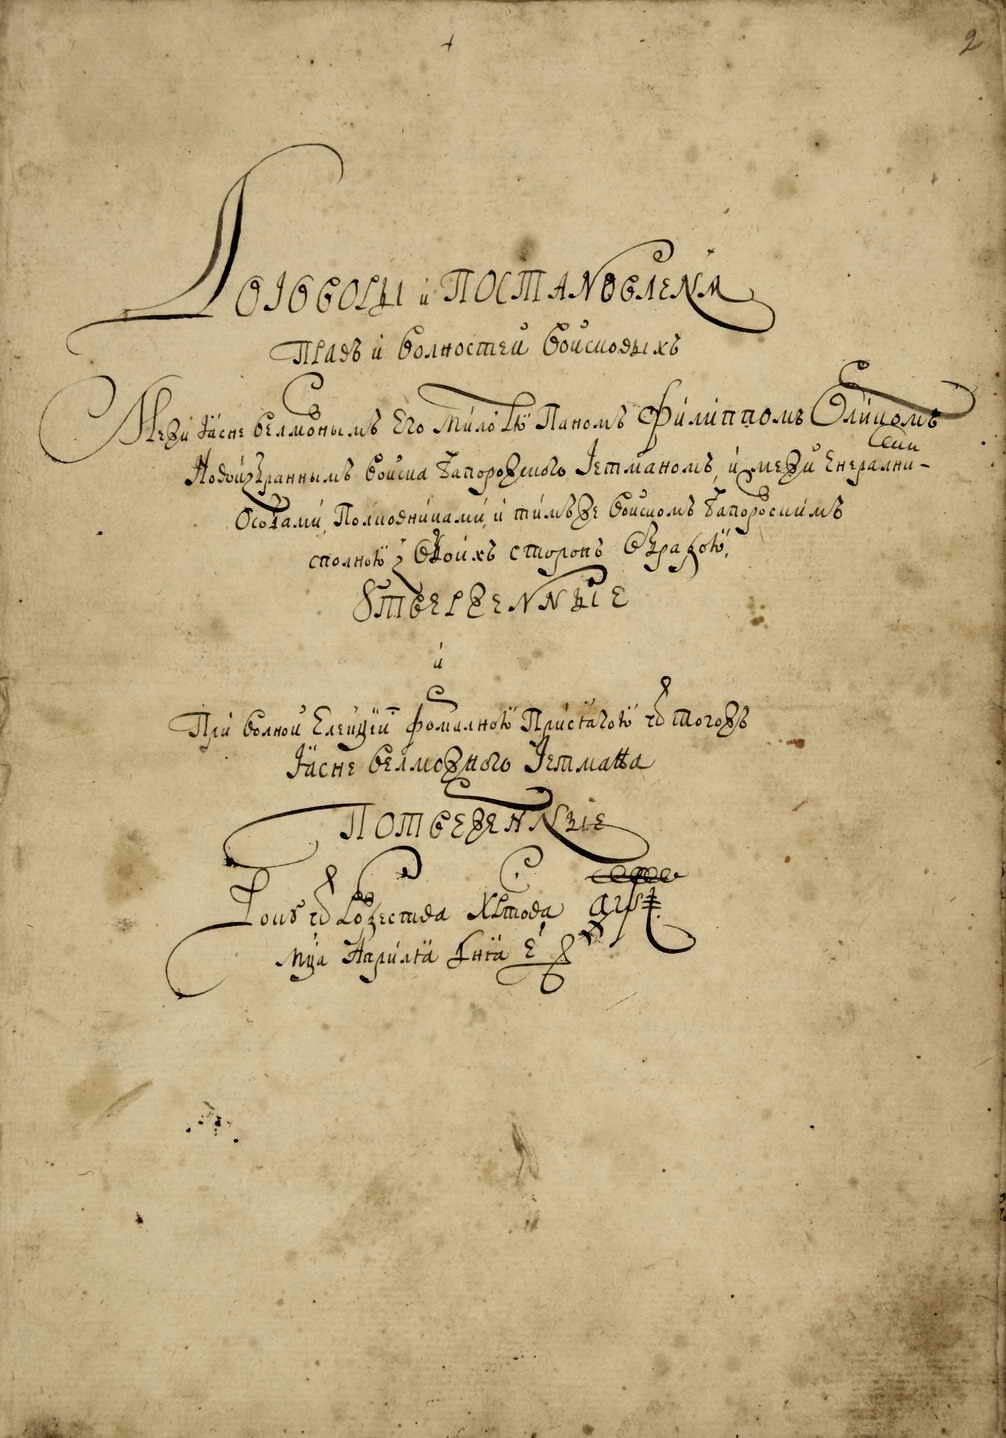 2
Договоры и Постановленя
Правъ и волностей войсковыхъ
Межи Ясне велможнымъ Его милостю Паномъ Филиппомъ Орликомъ
Новоизбраннымъ войска Запорожского Гетманомъ, и межи Енералними
Особами, Полковниками, и тимъже войскомъ Запорожскимъ
сполною з обоихъ сторонъ обрадою,
Утверженные
и
При волной Елекціи формалною Присягою ѿ тогожъ
Ясне велможного Гетмана
Потверженные
Року ѿ Рождества Христова ҂аѱі.
мца Априля дня е҃